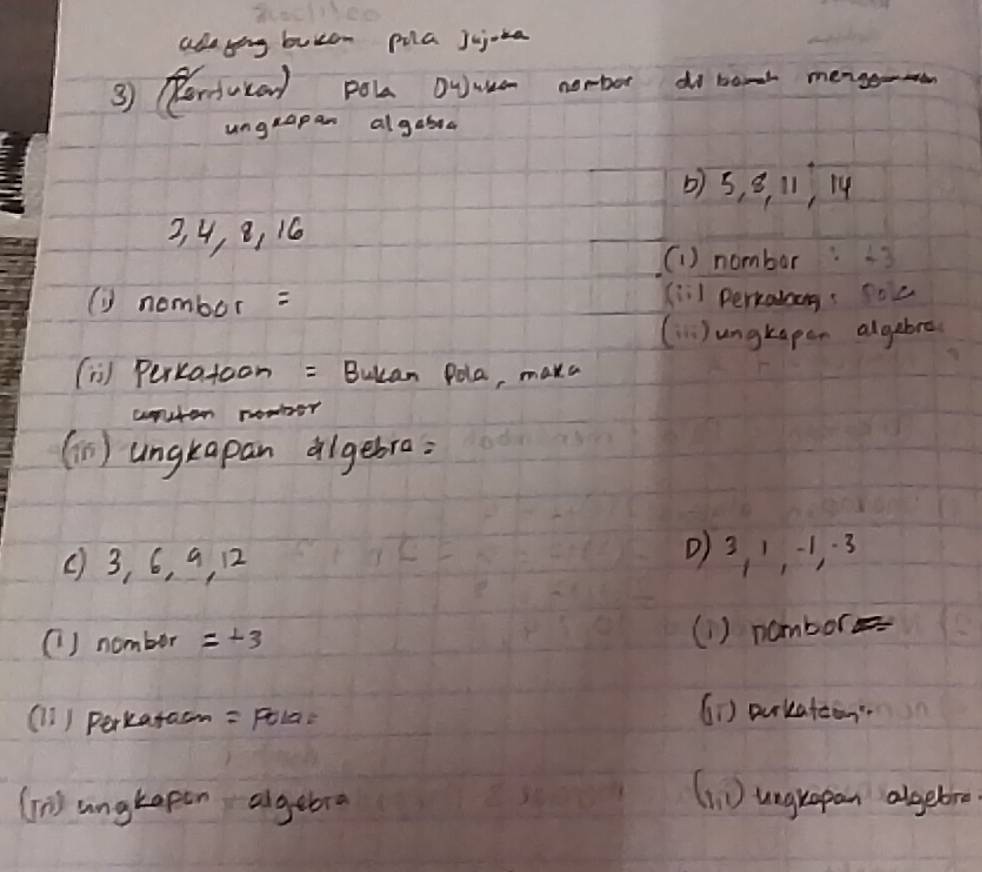 ada yang bukan pola jujukan
3) (Tentukan) pola Dujukan nombor di bawah menggunakan
ungkapan algebra
2, 4, 8, 16
(i) nombor =
(ii) Perkataan = Bukan Pola, maka
urutan nombor
(iii) ungkapan algebra =
b) 5, 8, 11, 14
(i) nombor : +3
(ii) Perkataan : Pola
(iii) ungkapan algebra
c) 3, 6, 9, 12
(i) nombor = +3
(ii) Perkataan = Pola =
(iii) ungkapan algebra
D) 3, 1, -1, -3
(i) nombor =
(ii) perkataan :
(iii) ungkapan algebra